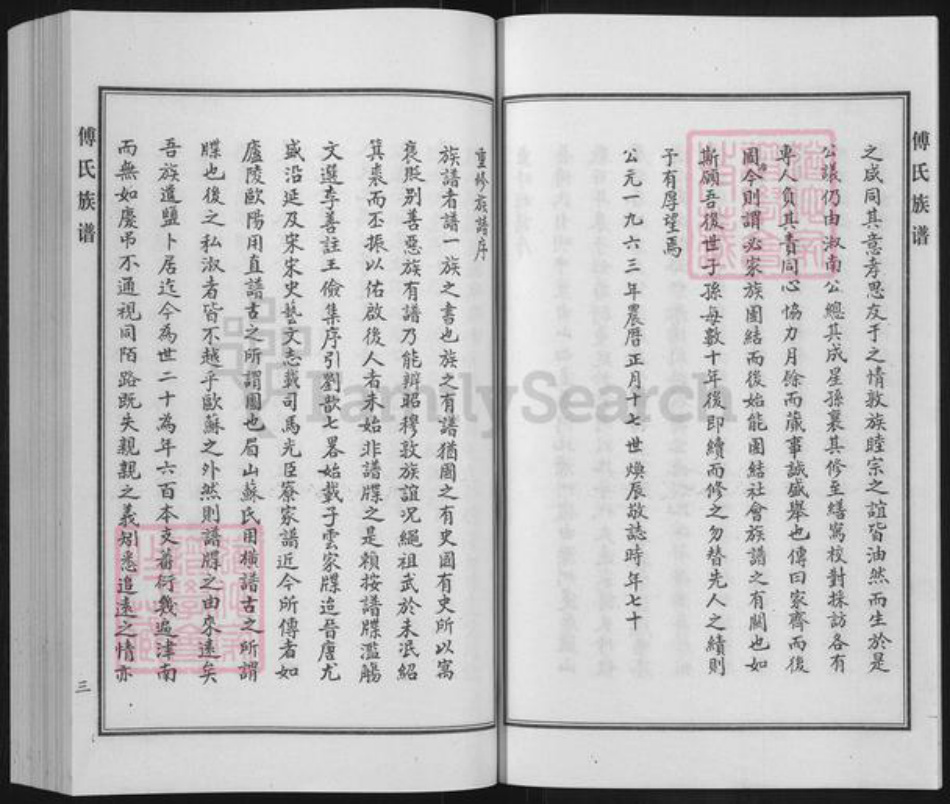 傅氏族谱
之感同其意孝思友于之情敦族睦宗之誼皆油然而生於是
公議仍由淑南公總其成星孫襄其修至繕寫校對採訪各有
專人負其責同心協力月餘而蕆事誠盛舉也傳曰家齊而後
國令則謂必家族團結而後始能團結社會族譜之有關也如
斯願吾後世子孫每數十年後即續而修之勿替先人之續則
于有厚望焉
公元一九六三年農曆正月十七世煥辰敬誌時年七十
重修族譜序
族譜者譜一族之書也族之有譜猶國之有史國有史所以寓
褒貶別善惡族有譜乃能辨昭穆敦族誼况繩祖武於未泯紹
箕裘而丕振以佑啟後人者未始非譜牒之是賴按譜牒濫觴
文選李善註王儉集序引劉歆七畧始載子雲家牒迨晉唐尤
盛沿延及宋宋史藝文志載司馬光臣寮家譜近今所傳者如
廬陵歐陽用直譜古之所謂圖也眉山蘇氏用橫譜古之所謂
牒也後之私淑者皆不越乎歐蘇之外然則譜牒之由來遠矣
吾族遷鹽卜居迄今為世二十為年六百本支蕃衍幾遍津南
而無如慶弔不通視同陌路既失親親之義矧悉追遠之情亦
傅氏族谱
三
FamilySearch